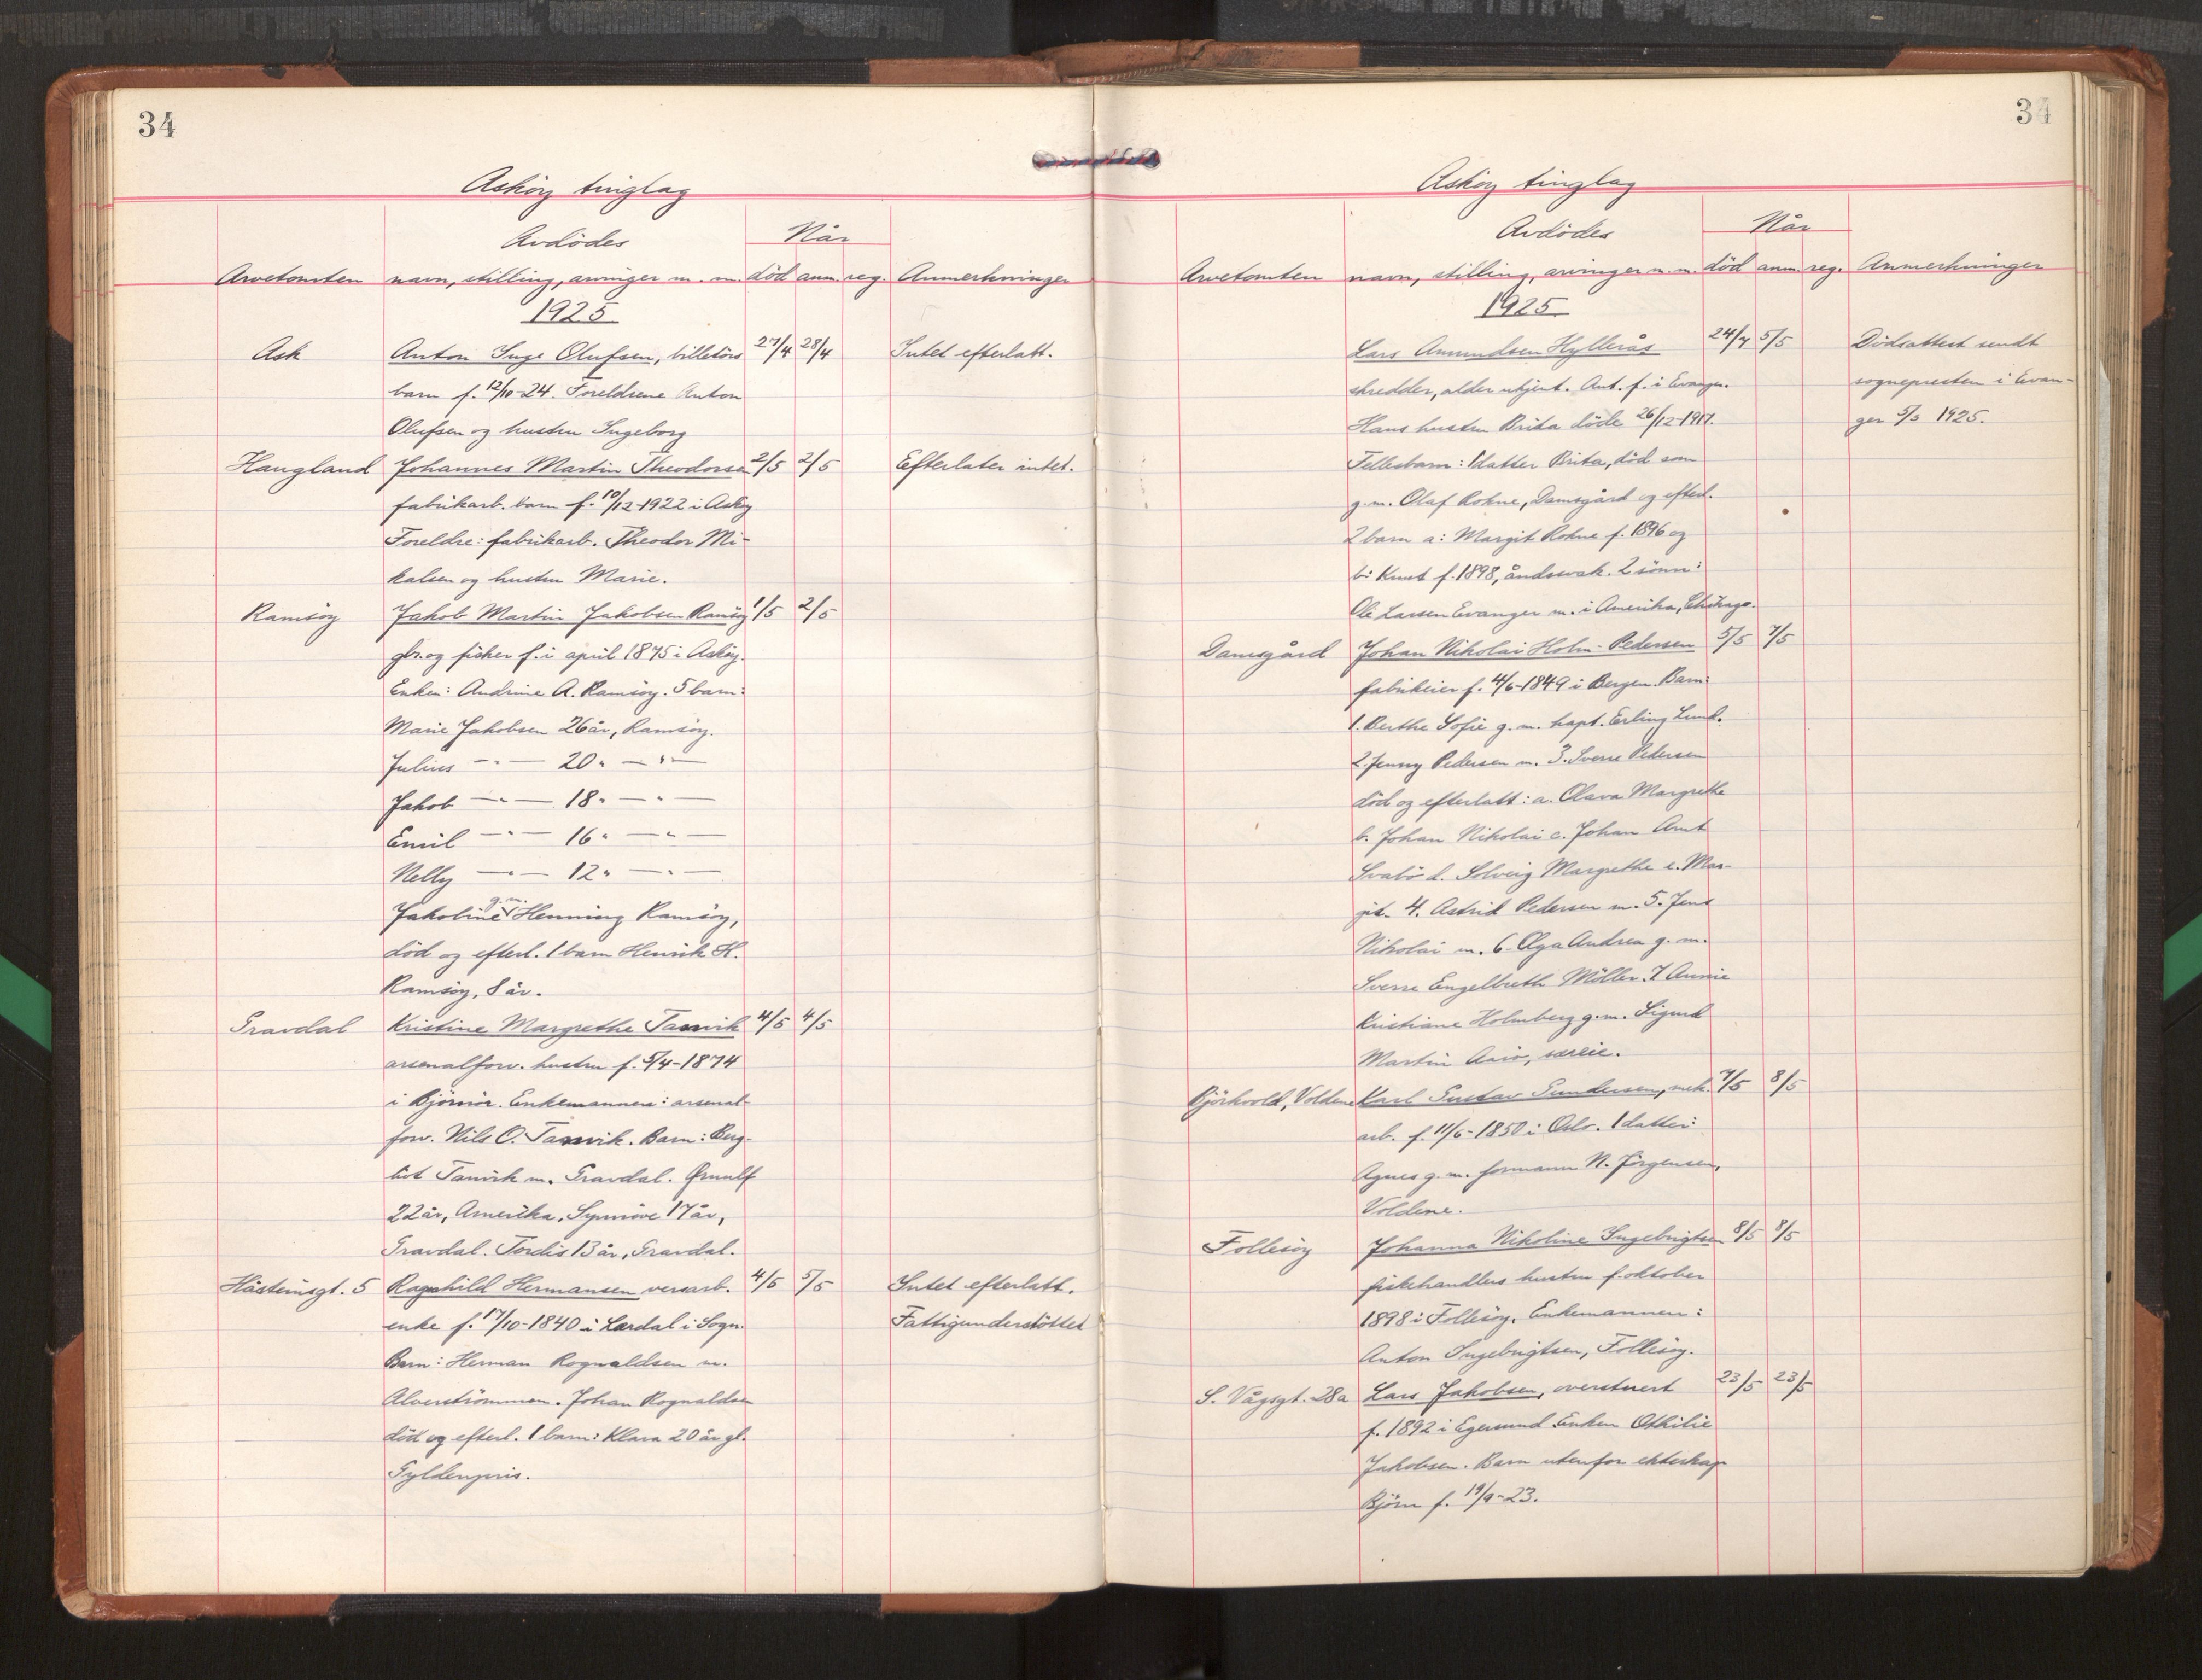 34
Asköy tinglag
Avdödes
Når
Arvetomten navn, stilling, arvinger m. m. död anm. reg. Anmerkninger
1925
Ask Anton Inge Olufsen, billetörs 27/4 28/4 Intet efterlatt.
barn f. 12/10-24. Foreldrene Anton
Olufsen og hustru Ingeborg
Haugland Johannes Martin Theodorsen 2/5 2/5 Efterlater intet.
fabrikarb. barn f. 10/12-1922 i Asköy
Foreldre: fabrikarb. Theodor Mi-
kalsen og hustru Marie.
Ramsöy Jakob Martin Jakobsen Ramsöy 1/5 2/5
gbr. og fisker f. i april 1875 i Asköy.
Enken: Andrine A. Ramsöy. 5 barn:
Marie Jakobsen 26 år, Ramsöy.
Julius — " — 20 " — " —
Jakob — " — 18 " — " —
Emil — " — 16 " — " —
Nelly — " — 12 " — " —
Jakobine g.m. Henning Ramsöy,
död og efterl. 1 barn Henrik H.
Ramsöy, 8 år.
Gravdal Kristine Margrethe Tannvik 4/5 4/5
arsenalforv. hustru f. 5/4-1874
i Björnör. Enkemannen: arsenal-
forv. Nils O. Tannvik. Barn: Berg-
liot Tanvik m. Gravdal. Ørnulf
22 år, Amerika, Synnöve 17 år,
Gravdal. Tordis 13 år, Gravdal.
Håsteinsgt. 5 Ragnhild Hermansen verksarb. 4/5 5/5 Intet efterlatt.
enke f. 17/10-1840 i Lærdal i Sogn. Fattigunderstöttet
Barn: Herman Rognaldsen m.
Alverströmmen. Johan Rognaldsen
död og efterl. 1 barn: Klara 20 år gl.
Gyldenpris.
34
Asköy tinglag
Avdödes
Når
Arvetomten navn, stilling, arvinger m. m. död anm. reg. Anmerkninger
1925
Lars Amundsen Hyllerås 24/4 5/5 Dödsattest sendt
skredder, alder ukjent. Ant. f. i Evanger. sognepresten i Evan-
Hans hustru Brita döde 26/12-1917. ger 5/5 1925.
Fellesbarn: 1 datter Brita, död som
g.m. Olaf Rohne, Damsgård og efterl.
2 barn a: Margit Rohne f. 1896 og
b: Knut f. 1898, åndssvak. 2 sönn:
Ole Larsen Evanger m. i Amerika, Chikago.
Damsgård Johan Nikolai Holm-Pedersen 5/5 7/5
fabrikeier f. 4/6-1849 i Bergen. Barn:
1. Berthe Sofie g.m. kapt. Erling Lund.
2. Jenny Pedersen m. 3. Sverre Pedersen
död og efterlatt: a. Olava Margrethe
b. Johan Nikolai c. Johan Arnt
Svabö d. Solveig Margrethe e. Mar-
git. 4. Astrid Pedersen m. 5. Jens
Nikolai m. 6. Olga Andrea g.m.
Sverre Engelbreth Möller. 7 Annie
Kristiane Holmberg g.m. Sigurd
Martin særeie.
Björkvold, Voldene Karl Gustav Gundersen, mek. 7/5 8/5
arb. f. 11/6-1850 i Oslo. 1 datter:
Agnes g.m. formann N. Jörgensen,
Voldene.
Follesöy Johanna Nikoline Ingebrigtsen 8/5 8/5
fiskehandlers hustru f. oktober
1898 i Follesöy. Enkemannen:
Anton Ingebrigtsen, Follesöy.
S. Vågsgt. 28a Lars Jakobsen, overstuert 23/5 23/5
f. 1892 i Egersund Enken Othilie
Jakobsen. Barn utenfor ekteskap
Björn f. 19/9-23.